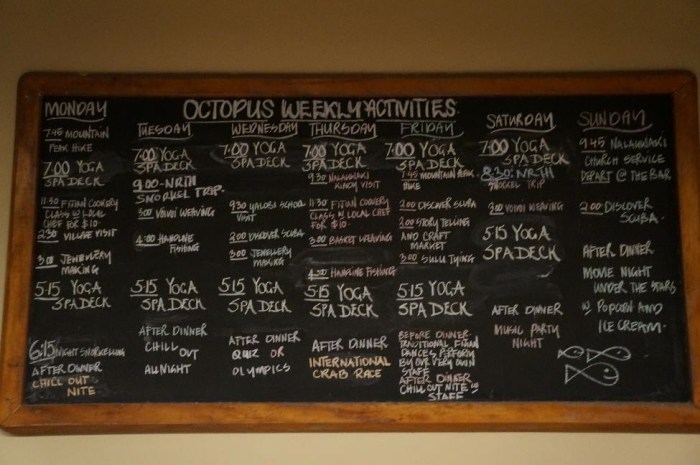 OCTOPUS WEEKLY ACTIVITIES
MONDAY
7:45 MOUNTAIN
PEAK HIKE
7:00 YOGA
SPA DECK
11:30 FIJIAN COOKERY
CLASS W LOCAL
CHEF FOR $10
2:30 VILLAGE VISIT
3:00 JEWELLERY
MAKING
5:15 YOGA
SPA DECK
6:15 NIGHT SNORKELLING
AFTER DINNER
CHILL OUT
NITE
TUESDAY
7:00 YOGA
SPA DECK
9:00 NRTH
SNORKEL TRIP
3:00 VOIVOI WEAVING
4:00 HANDLINE
FISHING
5:15 YOGA
SPA DECK
AFTER DINNER
CHILL OUT
ALL NIGHT
WEDNESDAY
7:00 YOGA
SPA DECK
9:30 YALOBI SCHOOL
VISIT
2:00 DISCOVER SCUBA
3:00 JEWELLERY
MAKING
5:15 YOGA
SPA DECK
AFTER DINNER
QUIZ OR
OLYMPICS
THURSDAY
7:00 YOGA
SPA DECK
9:30 NALAUWAKI
KINDY VISIT
11:30 FIJIAN COOKERY
CLASS W LOCAL CHEF
FOR $10
3:00 BASKET WEAVING
4:00 HANDLINE FISHING
5:15 YOGA
SPA DECK
AFTER DINNER
INTERNATIONAL
CRAB RACE
FRIDAY
7:00 YOGA
SPA DECK
7:45 MOUNTAIN PEAK
HIKE
2:00 DISCOVER SCUBA
2:00 STORY TELLING
AND CRAFT
MARKET
3:00 SULU TYING
5:15 YOGA
SPA DECK
BEFORE DINNER
TRADITIONAL FIJIAN
DANCES PERFORM
BY OUR VERY OWN
STAFF
AFTER DINNER
CHILL OUT NITE W
STAFF
SATURDAY
7:00 YOGA
SPA DECK
8:30 NRTH
SNOCKEL TRIP
9:00 VOIVOI WEAVING
5:15 YOGA
SPA DECK
AFTER DINNER
MUSIC PARTY
NIGHT
SUNDAY
9:45 NALAUWAKI
CHURCH SERVICE
DEPART @ THE BAR
2:00 DISCOVER
SCUBA.
AFTER DINNER
MOVIE NIGHT
UNDER THE STARS
W POPCORN AND
ICE CREAM.